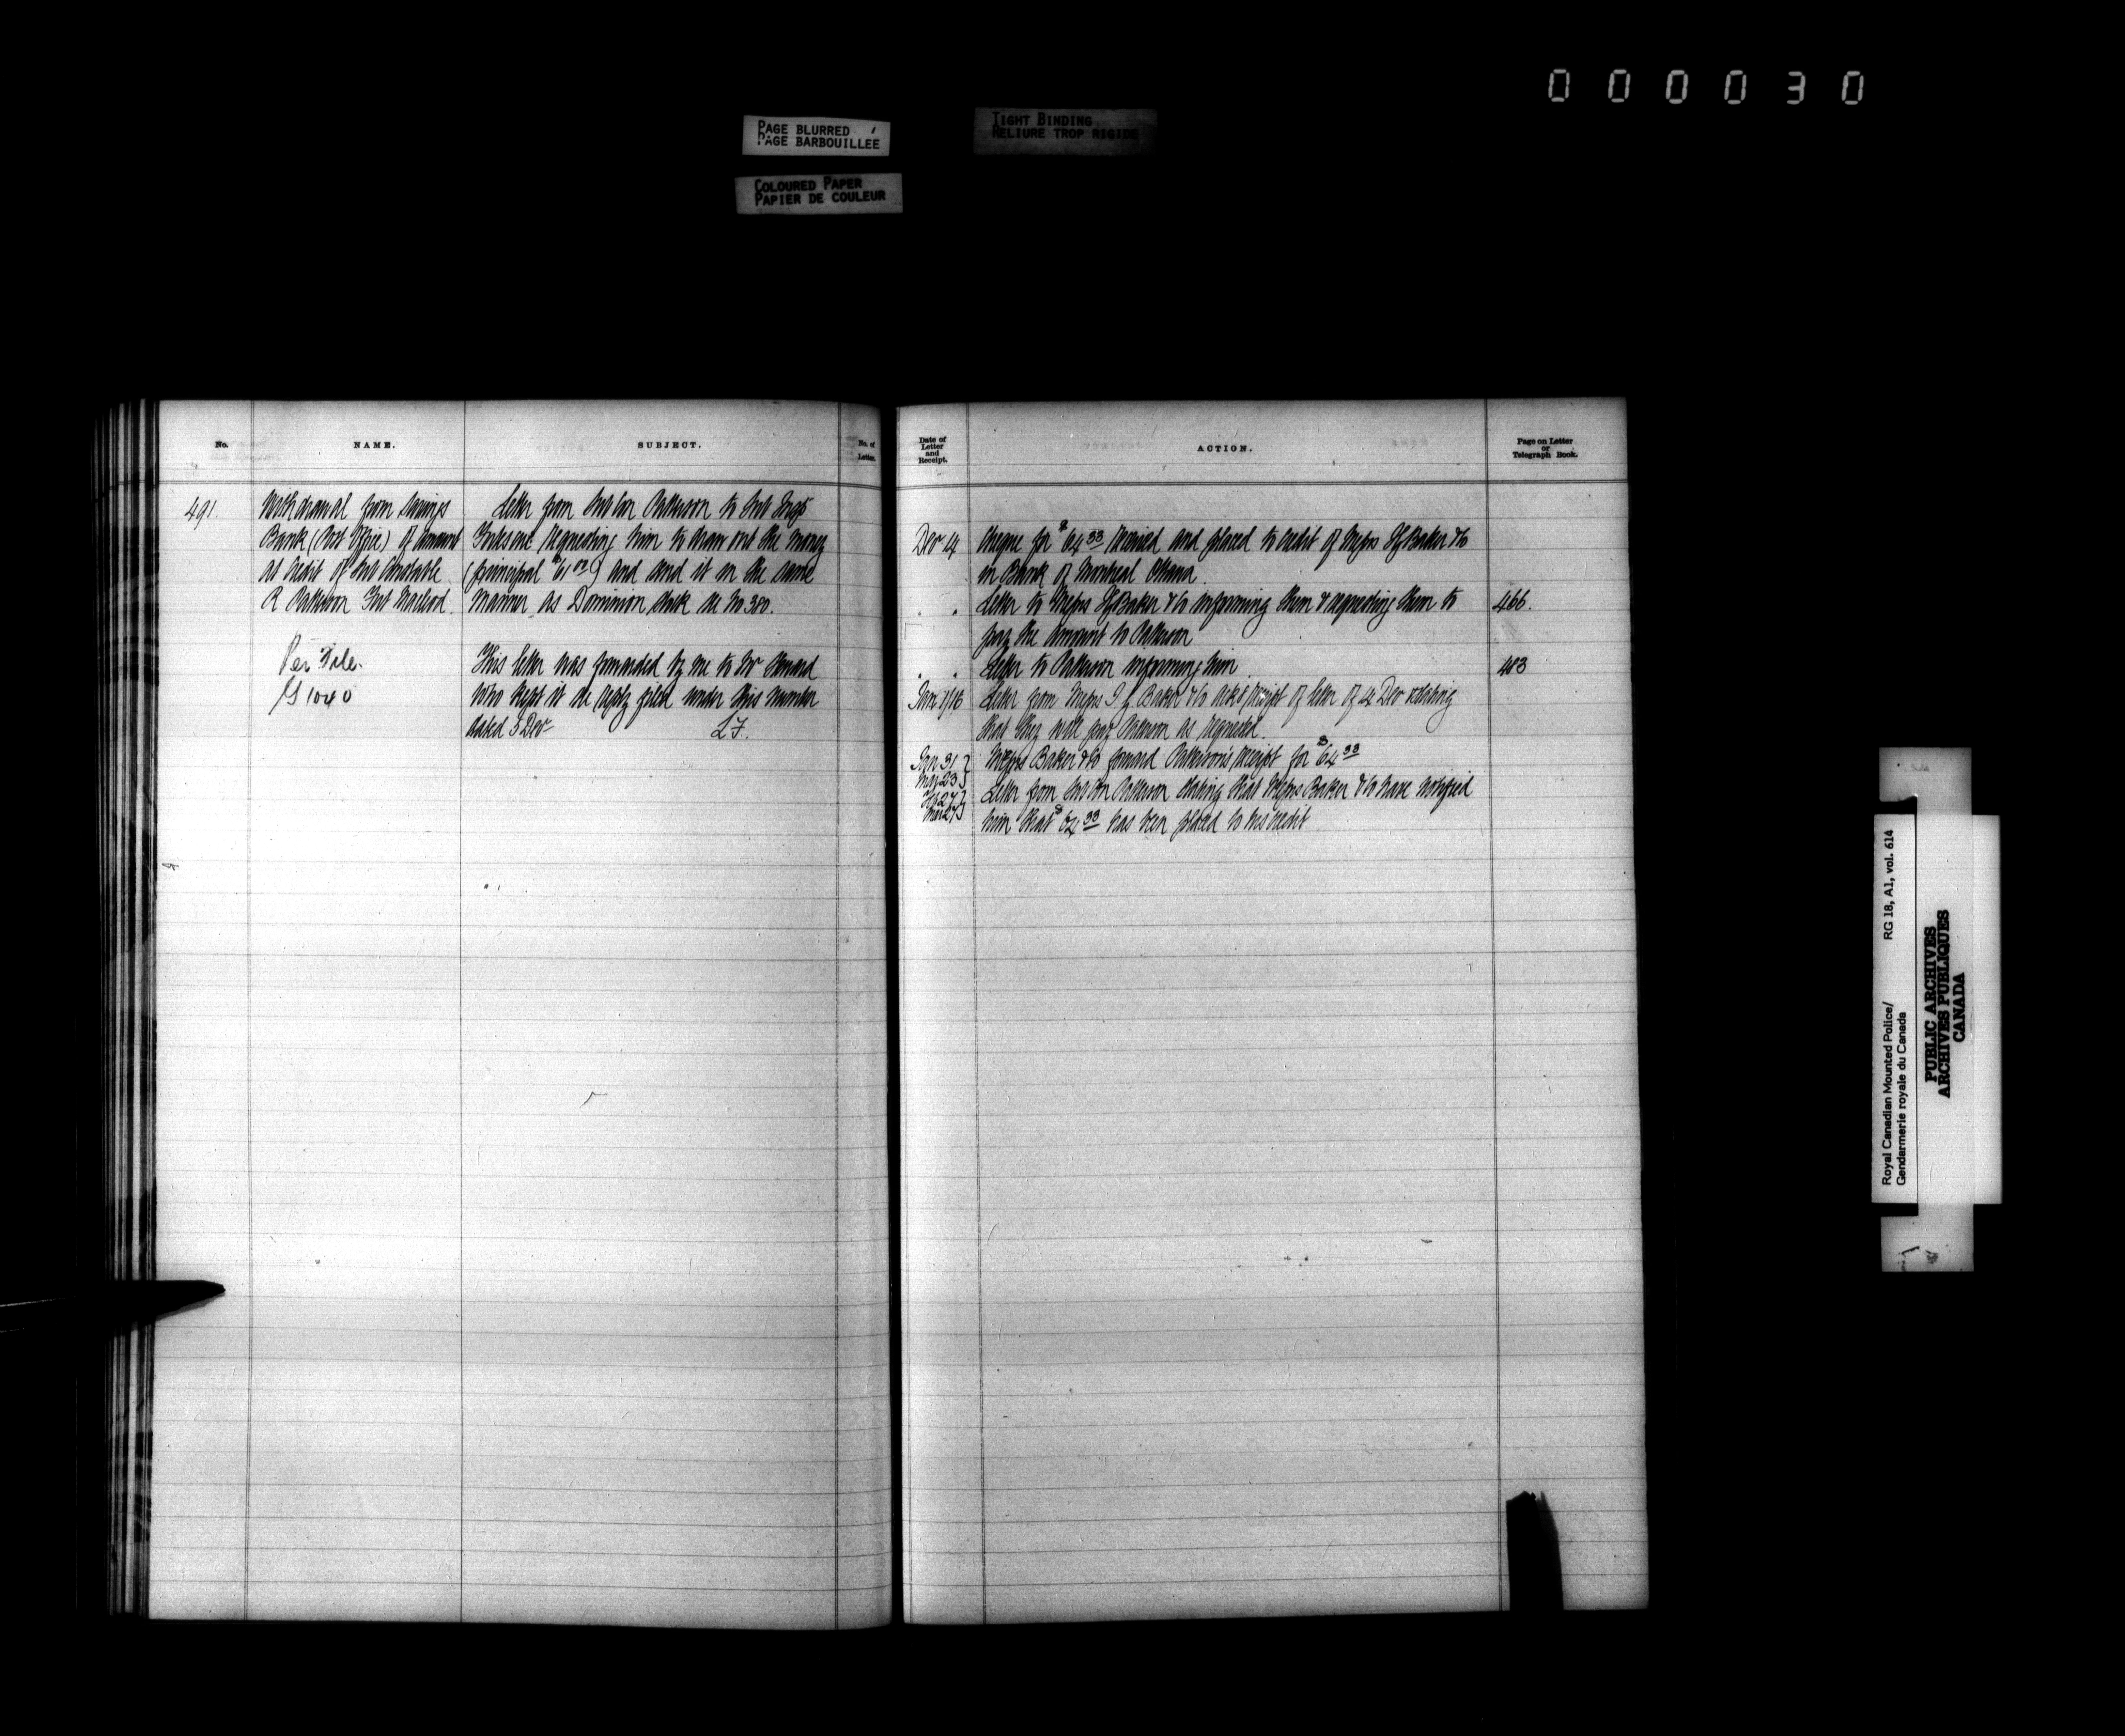 000030
PAGE BLURRED
PAGE BARBOUILLEE
TIGHT BINDING
RELIURE TROP RIGIDE
COLOURED PAPER
PAPIER DE COULEUR
No.
NAME.
SUBJECT.
No. of
Letter.
491.
Withdrawal from Savings
Bank (Post Office) of amount
at credit of Constable
R Patterson Fort Macleod.
Per File
G 1040
Letter from Patterson to
requesting him to draw out the money
(principal $61 00) and send it in the same
manner as Dominion Stock see No 380.
This letter was forwarded by me to Mr
who kept it see reply filed under this number
dated 3 Dec
Date of
Letter
and
Receipt.
ACTION.
Page on Letter
or
Telegraph Book.
Dec 14
Cheque for $64 33 received and placed to credit of Messrs I G Baker & Co
in Bank of Montreal Ottawa
Letter to Messrs I G Baker & Co informing them & requesting them to
466.
pay the amount to Patterson
Letter to Patterson informing him
483
Letter from Messrs I G Baker & Co receipt of letter of 14 Dec & stating
that they will pay Patterson as requested.
Jan 31
Messrs Baker & Co forward Patterson's receipt for $64 33
Letter from Patterson stating that Messrs Baker & Co have notified
him that $64 33 has been placed to his credit
Royal Canadian Mounted Police/
Gendarmerie royale du Canada
RG 18, A1, vol. 614
PUBLIC ARCHIVES
ARCHIVES PUBLIQUES
CANADA